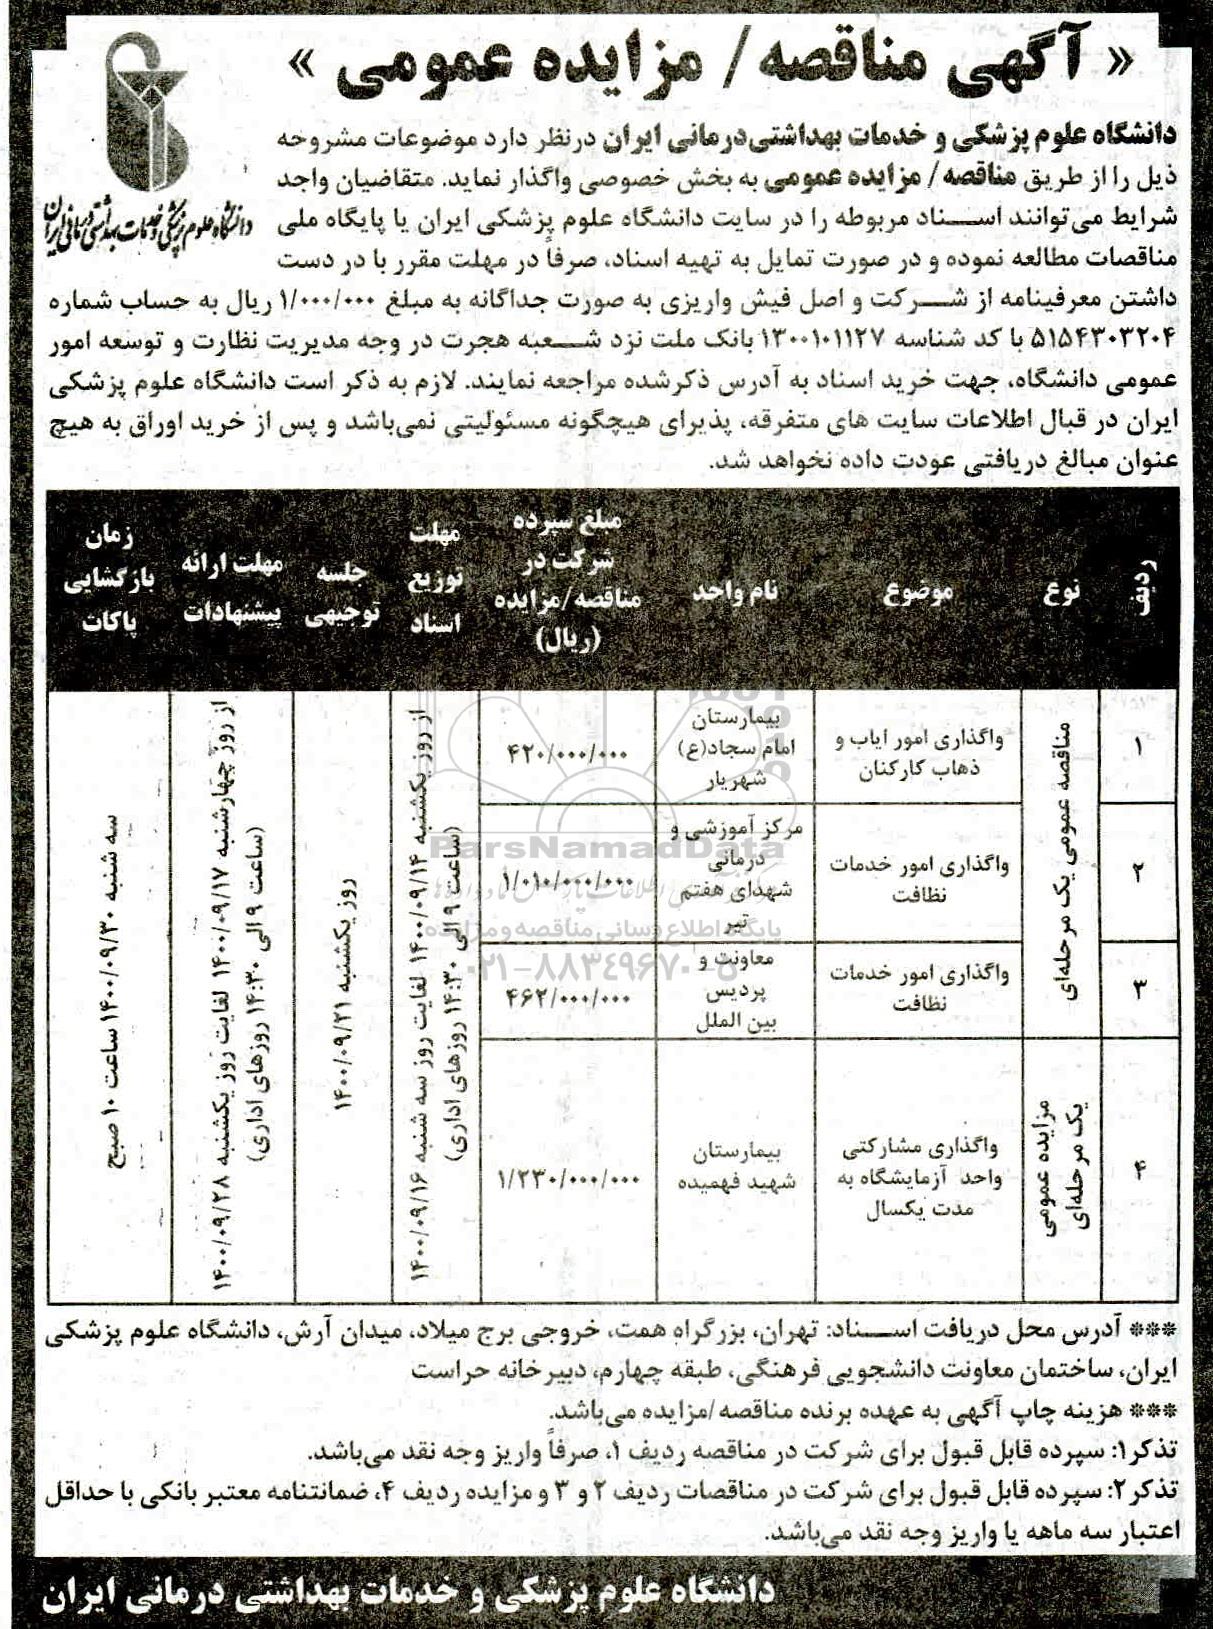 « آگهی مناقصه / مزایده عمومی »
دانشگاه علوم پزشکی و خدمات بهداشتی درمانی ایران
دانشگاه علوم پزشکی و خدمات بهداشتی‌درمانی ایران درنظر دارد موضوعات مشروحه
ذیل را از طریق مناقصه / مزایده عمومی به بخش خصوصی واگذار نماید. متقاضیان واجد
شرایط می‌توانند اسناد مربوطه را در سایت دانشگاه علوم پزشکی ایران یا پایگاه ملی
مناقصات مطالعه نموده و در صورت تمایل به تهیه اسناد، صرفاً در مهلت مقرر با در دست
داشتن معرفینامه از شرکت و اصل فیش واریزی به صورت جداگانه به مبلغ ۱/۰۰۰/۰۰۰ ریال به حساب شماره
۵۱۵۴۳۰۳۲۰۴ با کد شناسه ۱۳۰۰۱۰۱۱۲۷ بانک ملت نزد شعبه هجرت در وجه مدیریت نظارت و توسعه امور
عمومی دانشگاه، جهت خرید اسناد به آدرس ذکرشده مراجعه نمایند. لازم به ذکر است دانشگاه علوم پزشکی
ایران در قبال اطلاعات سایت های متفرقه، پذیرای هیچگونه مسئولیتی نمی‌باشد و پس از خرید اوراق به هیچ
عنوان مبالغ دریافتی عودت داده نخواهد شد.
ردیف
نوع
موضوع
نام واحد
مبلغ سپرده
شرکت در
مناقصه/مزایده
(ریال)
مهلت
توزیع
اسناد
جلسه
توجیهی
مهلت ارائه
پیشنهادات
زمان
بازگشایی
پاکات
۱
مناقصه عمومی یک مرحله‌ای
واگذاری امور ایاب و
ذهاب کارکنان
بیمارستان
امام سجاد(ع)
شهریار
۴۲۰/۰۰۰/۰۰۰
از روز یکشنبه ۱۴۰۰/۰۹/۱۴ لغایت روز سه شنبه ۱۴۰۰/۰۹/۱۶
(ساعت ۹ الی ۱۴:۳۰ روزهای اداری)
روز یکشنبه ۱۴۰۰/۰۹/۲۱
از روز چهارشنبه ۱۴۰۰/۰۹/۱۷ لغایت روز یکشنبه ۱۴۰۰/۰۹/۲۸
(ساعت ۹ الی ۱۴:۳۰ روزهای اداری)
سه شنبه ۱۴۰۰/۰۹/۳۰ ساعت ۱۰ صبح
۲
واگذاری امور خدمات
نظافت
مرکز آموزشی و
درمانی
شهدای هفتم
تیر
۱/۰۱۰/۰۰۰/۰۰۰
۳
واگذاری امور خدمات
نظافت
معاونت و
پردیس
بین الملل
۴۶۲/۰۰۰/۰۰۰
۴
مزایده عمومی
یک مرحله‌ای
واگذاری مشارکتی
واحد آزمایشگاه به
مدت یکسال
بیمارستان
شهید فهمیده
۱/۲۳۰/۰۰۰/۰۰۰
ParsNamadData
پایگاه اطلاع رسانی مناقصه و مزایده
۰۲۱-۸۸۳۴۹۶۷۰-۵
*** آدرس محل دریافت اسناد: تهران، بزرگراه همت، خروجی برج میلاد، میدان آرش، دانشگاه علوم پزشکی
ایران، ساختمان معاونت دانشجویی فرهنگی، طبقه چهارم، دبیرخانه حراست
*** هزینه چاپ آگهی به عهده برنده مناقصه/مزایده می‌باشد.
تذکر۱: سپرده قابل قبول برای شرکت در مناقصه ردیف ۱، صرفاً واریز وجه نقد می‌باشد.
تذکر۲: سپرده قابل قبول برای شرکت در مناقصات ردیف ۲ و ۳ و مزایده ردیف ۴، ضمانتنامه معتبر بانکی با حداقل
اعتبار سه ماهه یا واریز وجه نقد می‌باشد.
دانشگاه علوم پزشکی و خدمات بهداشتی درمانی ایران